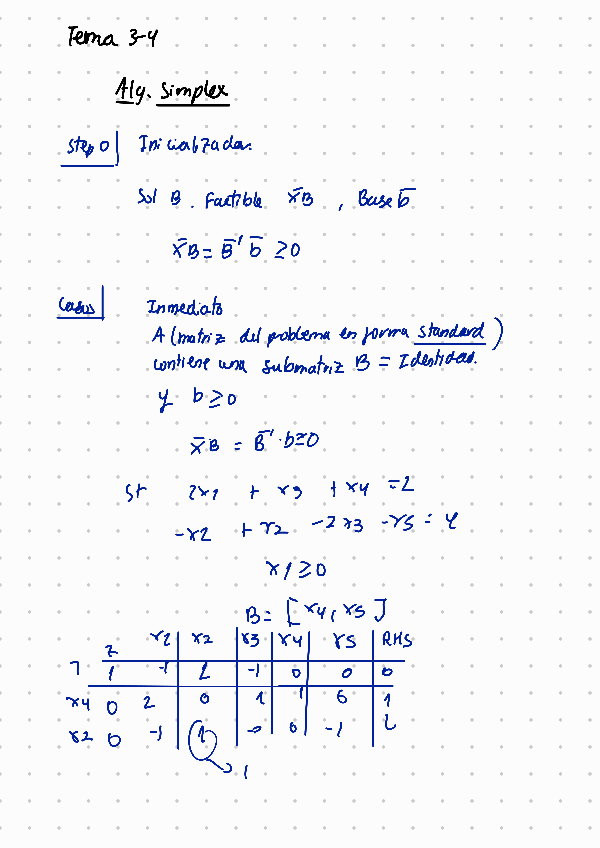 Tema 3-4
Alg. Simplex
Step 0 Inicializador.
Sol B. Factible X̄B , Base b̄
X̄B = B̄⁻¹ b̄ ≥ 0
Casos Inmediato
A (matriz del problema en forma standard)
contiene una submatriz B = Identidad.
y b ≥ 0
X̄B = B̄⁻¹ · b ≥ 0
St 2x1 + x3 + x4 = 2
-x2 + x2 -2x3 -x5 = 4
x1 ≥ 0
B = [x4, x5]
z x2 x2 x3 x4 x5 RHS
1 -1 2 -1 0 0 0
x4 0 2 0 1 1 0 1
x2 0 -1 1 -0 0 -1 2
1